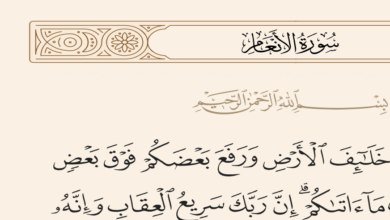 سُورَةُ الأَنْعَامِ
بِسْمِ اللَّهِ الرَّحْمَنِ الرَّحِيمِ
خَلَٰٓئِفَ ٱلْأَرْضِ وَرَفَعَ بَعْضَكُمْ فَوْقَ بَعْضٍ
مَآ ءَاتَىٰكُمْ ۗ إِنَّ رَبَّكَ سَرِيعُ ٱلْعِقَابِ وَإِنَّهُۥ